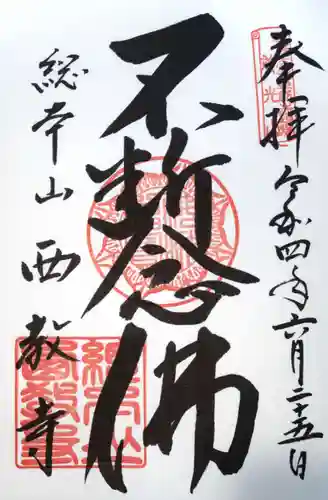 奉拝
令和四年六月二十五日
不断念佛
総本山西教寺